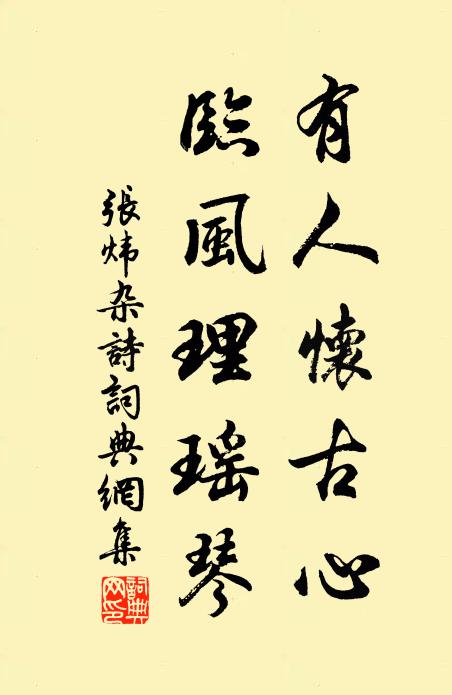 有人懷古心
臨風理瑶琴
張炜杂詩詞典網集
詞典网印